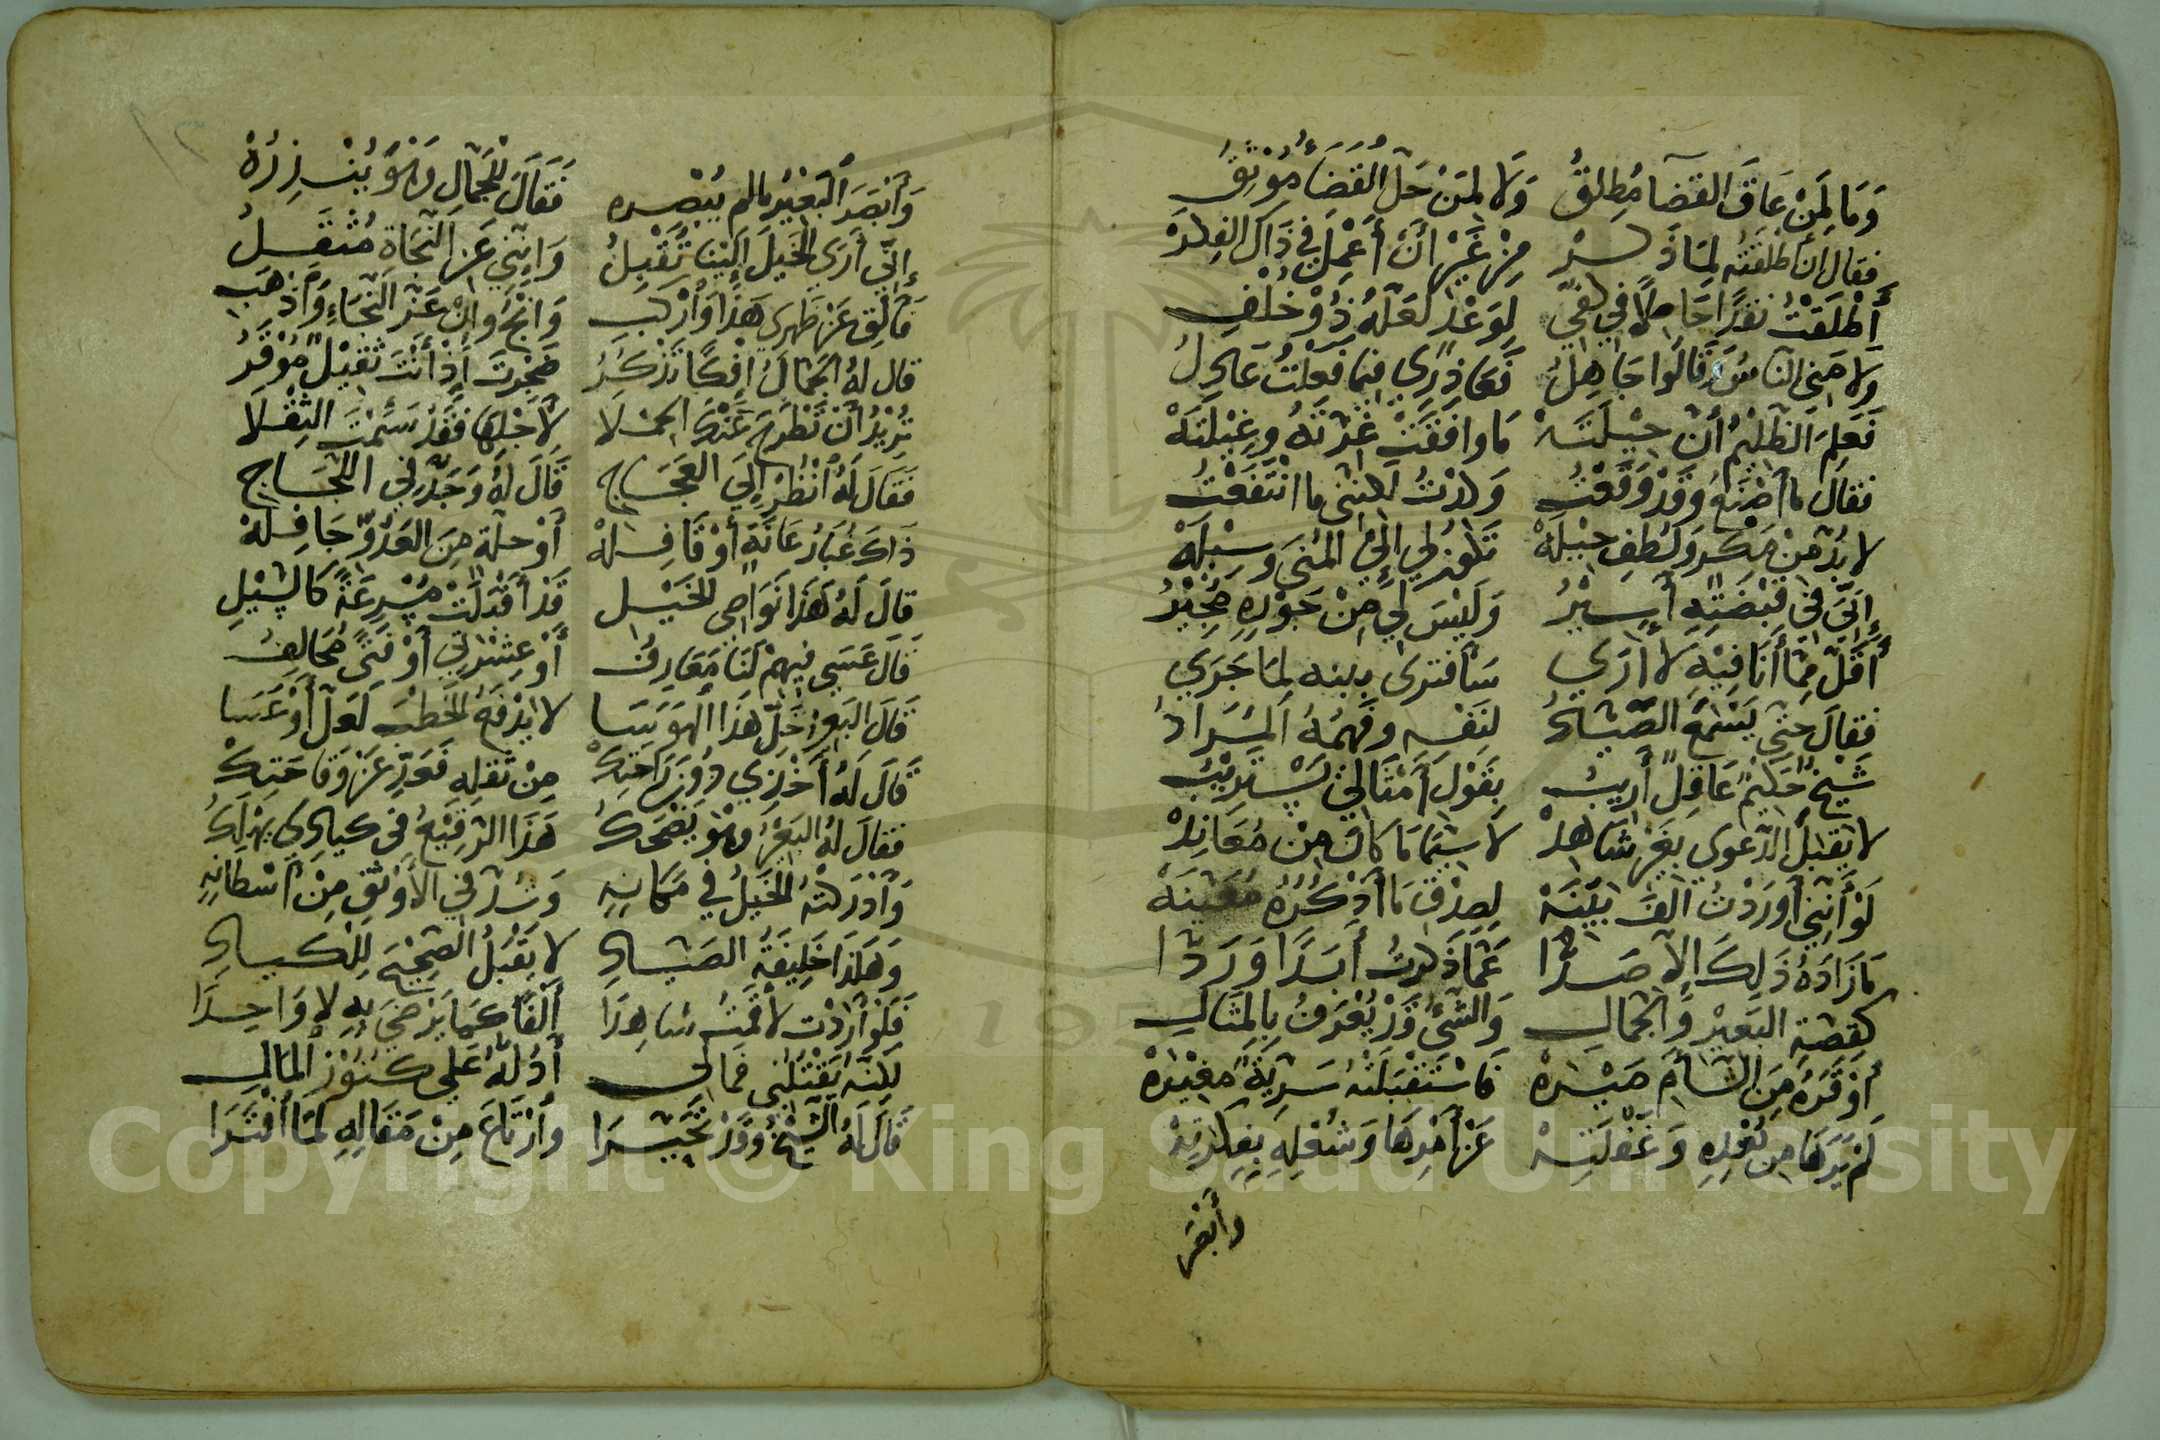 وَمَا لِمَنْ عَاقَ القَضَا مُطلِقُ وَلَا لِمَنْ حَلَّ الْقَضَاءُ مُوْثِقُ
فقال إن أطلقته لما ذكر مِنْ غَيْرِ أَنْ أُعْمِلَ فِي ذَاكَ الفِكَرْ
أَطْلَقْتُ نقدًا حَاصِلًا في كفي لِوَعْدِ لَعَلَّهُ ذُوْ خُلْفِ
وَلَامَنِي الناسُ وَقَالُوا جَاهِلُ فَعَاذِرِي فِيمَا فَعَلْتُ عَاذِلُ
فَعَلِمَ الظَّلِيْمُ أَنَّ حِيْلَتَهْ مَا وافَقَتْ غِرَّتَهُ وغِيْلَتَهْ
فقالَ ما أصْنَعُ وَقَدْ وَقَعْتُ وَلُذْتُ لكنني ما انْتَفَعْتُ
لا بُدَّ مِنْ مَكْرٍ وَلُطفِ حِيْلَهْ تكون لي إِلَى المُنَى وَسِيْلَهْ
إِنِّيَ في قَبْضَتِهِ أَسِيْرُ وَلَيْسَ لِي مِنْ جَوْرِهِ مُجِيْرُ
أَقَلَّ مِمَّا أَنَا فِيْهِ لَا أرَي سَأفتدى بينه لِمَا جَرَي
فقالَ حتى يسْمَعَ الصَّيَّادُ لنَفْسه وفَهمُهُ المُرَادُ
شَيْخٌ حَكِيْمٌ عَاقِلٌ أرِيبُ بِقَوْلِ أمْثَالِي يَسْتَرِيْبُ
لا يَقبَلُ الدَّعوي بِغَيْرِ شَاهِدْ لَا سِيَّمَا مَا كانَ مِنْ مُعَانِدْ
لَوْ أنَّنِي أَوْرَدْتُ ألفَ بَيِّنَهْ لِصِدْقِ مَا أذْكُرُهُ مُعَيَّنَهْ
مَا زَادَهُ ذَلِكَ إِلَّا صَدَّا عَمَّا ذَكرتُ أَبَدًا وَرَدَّا
كقِصَّةِ البَعِيْرِ وَالْجَمَّالِ وَالشيءُ قَدْ يُعْرَفُ بِالمِثَالِ
أَوْقَرَهُ مِنَ الشَّامِ مِيْرَهْ فَاسْتَقْبَلَتْهُ سَرِيَّةٌ مُغِيْرَهْ
لَمْ يَرَهَا من بُعْدِهِ وَغَفْلَتِهْ عَنْ أَمْرِهَا وَشُغْلِهِ بِفِكْرَتِهْ
وأبْصَرَ
وَأَبْصَرَ الْبَعِيْرُ مالم يُبْصره فَقَالَ لِلْجَمَّالِ وَهْوَ يُنْذِرُهْ
إِنِّي أَرَى الخَيْلَ إِلَيْنَا تُقْبِلُ وَإِنَّنِي عَنِ النَّجَاةِ مُثْقَلُ
فَألقِ عَنْ ظَهرِي هَذَا وَارْكَبِ وَانْجُ وإنْ عَزَّ النَّجَاءُ فَاذْهَبِ
قال لهُ الجَمَّالُ إِفْكًا تَذْكُرُ ضَجِرْتَ إذْ أَنْتَ ثقِيْلٌ مُوْقَرُ
تُرِيْدُ أَنْ تَطْرَحَ عَنْكَ الحملَا لأجْلِهَا فَقَدْ سَئِمْتَ الثِّقْلَا
فَقَالَ لَهُ انْظُرْ إِلَى العَجَاجِ قَالَ لَهُ وَجَدَّ فِي اللَّجَاجِ
ذَاكَ غُبَارُ عَانَةٍ أَوْ قَافِلهْ أَوْ حلَّةٍ مِنَ العَدُوِّ جَافِلهْ
قالَ لَهُ هَذَا نَوَاصِي الخَيْلِ قَدْ أَقْبَلَتْ مُسْرِعَةً كَالسَّيْلِ
قَالَ عَسَى فِيهِمْ لَنَا مَعَارِفُ أَوْ عِشْرَتِي أَوْ فَتًى مُحَالِفُ
قَالَ البَعِيْرُ خَلِّ هَذَا الهَوَسَا لا يَدْفَعُ الخَطْبَ لَعَلَّ أَوْ عَسَا
قَالَ لَهُ أَخْزِي دُونَ رَاحتِكْ مِنْ ثِقلِهِ فَعَدِّ عَنْ وَقَاحَتِكْ
فقالَ لهُ البَعِيْرُ وهْوَ يَضْحَكُ هَذَا الرَّقِيْعُ في كيادِي يَهْلِكُ
وَأدْرَكَتْهُ الخَيْلُ في مَكَانِهِ وَشُدَّ في الأَوْثَقِ مِنْ أَشْطَانِهِ
وَهَكَذَا خَلِيقَةُ الصَّيَّادِ لَا يَقْبَلُ الصَّحِيْحَ لِلكِيَادِ
فَلَوْ أَرَدْتُ لأقَمْتُ شاهِدَا أَلْفًا كَمَا يَرْضَى بِهِ لَا وَاحِدَا
لكِنَّهُ يَقْتُلُنِي فما لي أدُلُّهُ عَلى كُنُوْزِ المَالِ
قَالَ لَهُ الشَّيْخُ وَقَدْ تَحَيَّرَا وَارْتَاعَ مِنْ مَقَالِهِ لَمَّا افْتَرَا
Copyright © King Saud University